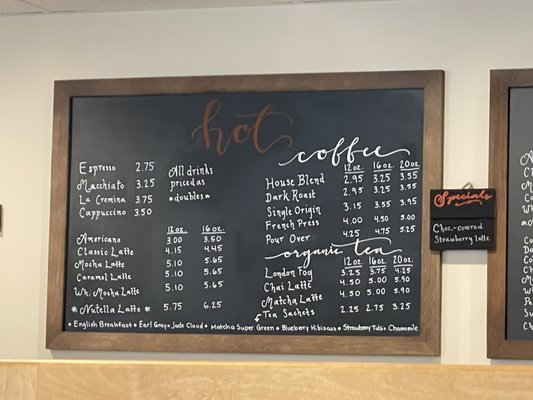 hot
Espresso 2.75
Macchiato 3.25
La Cremina 3.75
Cappuccino 3.50
All drinks
priced as
*doubles*
12oz. 16oz.
Americano 3.00 3.60
Classic Latte 4.15 4.45
Mocha Latte 5.10 5.65
Caramel Latte 5.10 5.65
Wh. Mocha Latte 5.10 5.65
*Nutella Latte* 5.75 6.25
coffee
12oz. 16oz. 20oz.
House Blend 2.95 3.25 3.55
Dark Roast 2.95 3.25 3.55
Single Origin 3.15 3.55 3.95
French Press 4.00 4.50 5.00
Pour Over 4.25 4.75 5.25
organic tea
12oz. 16oz. 20oz.
London Fog 3.25 3.75 4.25
Chai Latte 4.50 5.00 5.90
Matcha Latte 4.50 5.00 5.90
Tea Sachets 2.25 2.75 3.25
•English Breakfast• Earl Grey•Jade Cloud• Matcha Super Green• Blueberry Hibiscus• Strawberry Tulsi• Chamomile
Specials
Choc.-covered
Strawberry latte